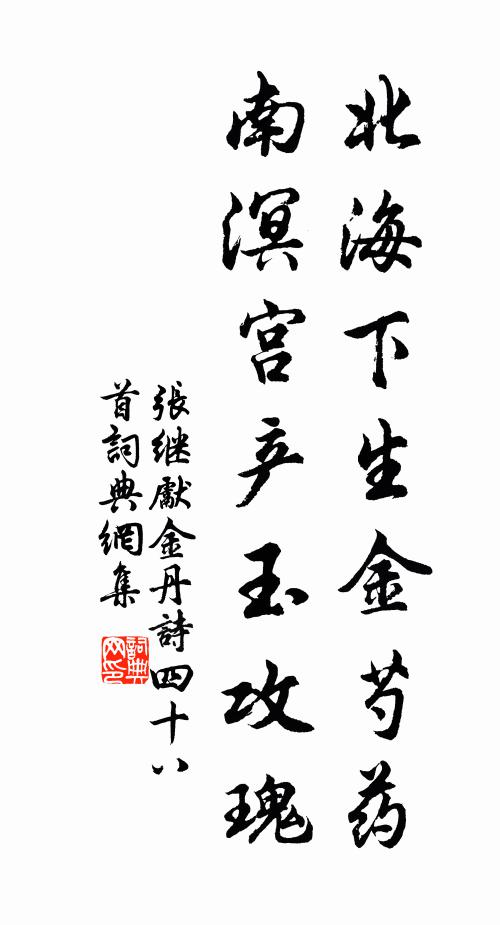 北海下生金芍药
南溟宫产玉攻瑰
張继獻金丹詩四十八
首詞典網集
詞典网印